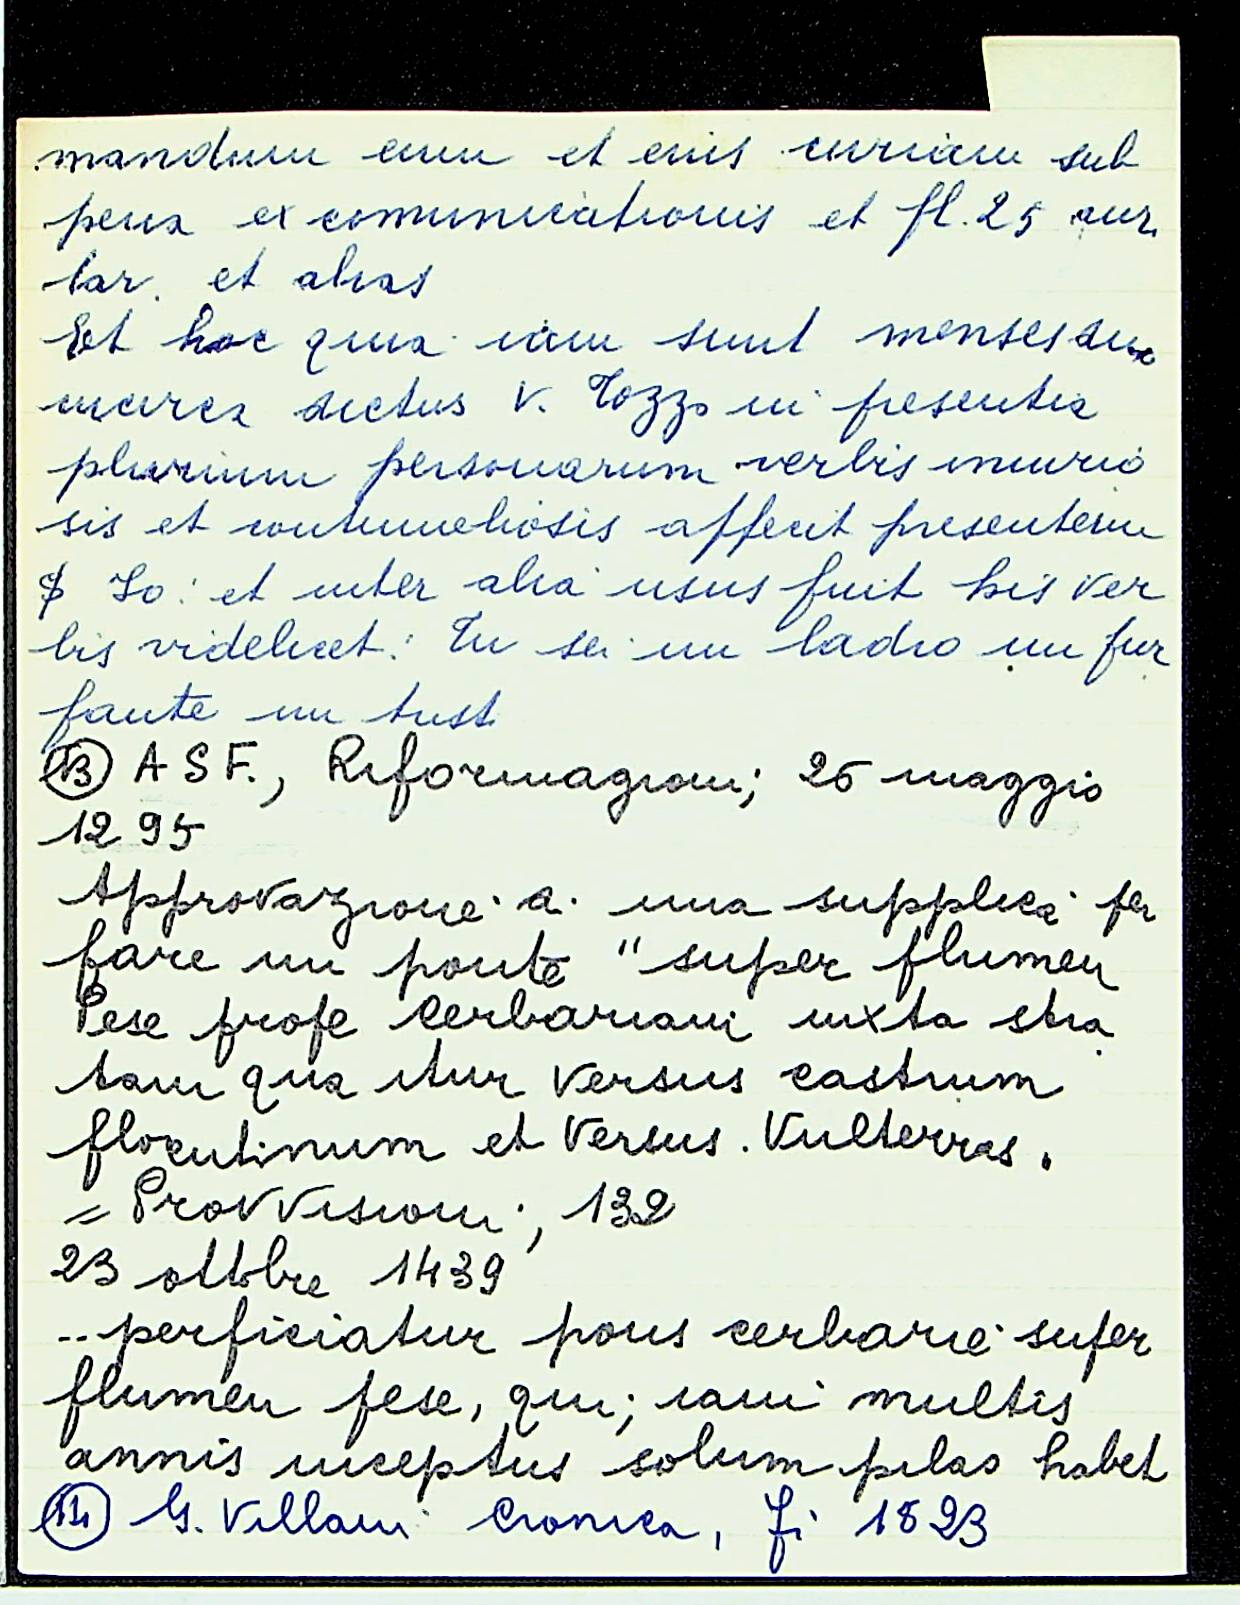 mandum eum et eius curiam sub
pena excomunicationis et fl. 25 aur.
lar. et alias
Et hoc quia iam sunt menses duo
circa dictus V. Tozzo in presentia
plurium personarum verbis iniurio
sis et contumeliosis affecit presentem
Io: et inter alia usus fuit his ver
bis videlicet: Tu sei un ladro un fur
fante un trist
(13) A S F., Riformagioni; 26 maggio
1295
Approvazione a una supplica per
fare un ponte "super flumen
Pese prope Cerbariam iuxta stra
tam qua itur versus castrum
florentinum et versus Vulterras.
= Provvisioni, 132
23 ottobre 1439
.. perficiatur pons cerbarie super
flumen pese, qui; iam multis
annis inceptus solum pilas habet
(14) G. Villani Cronica, Fi 1823